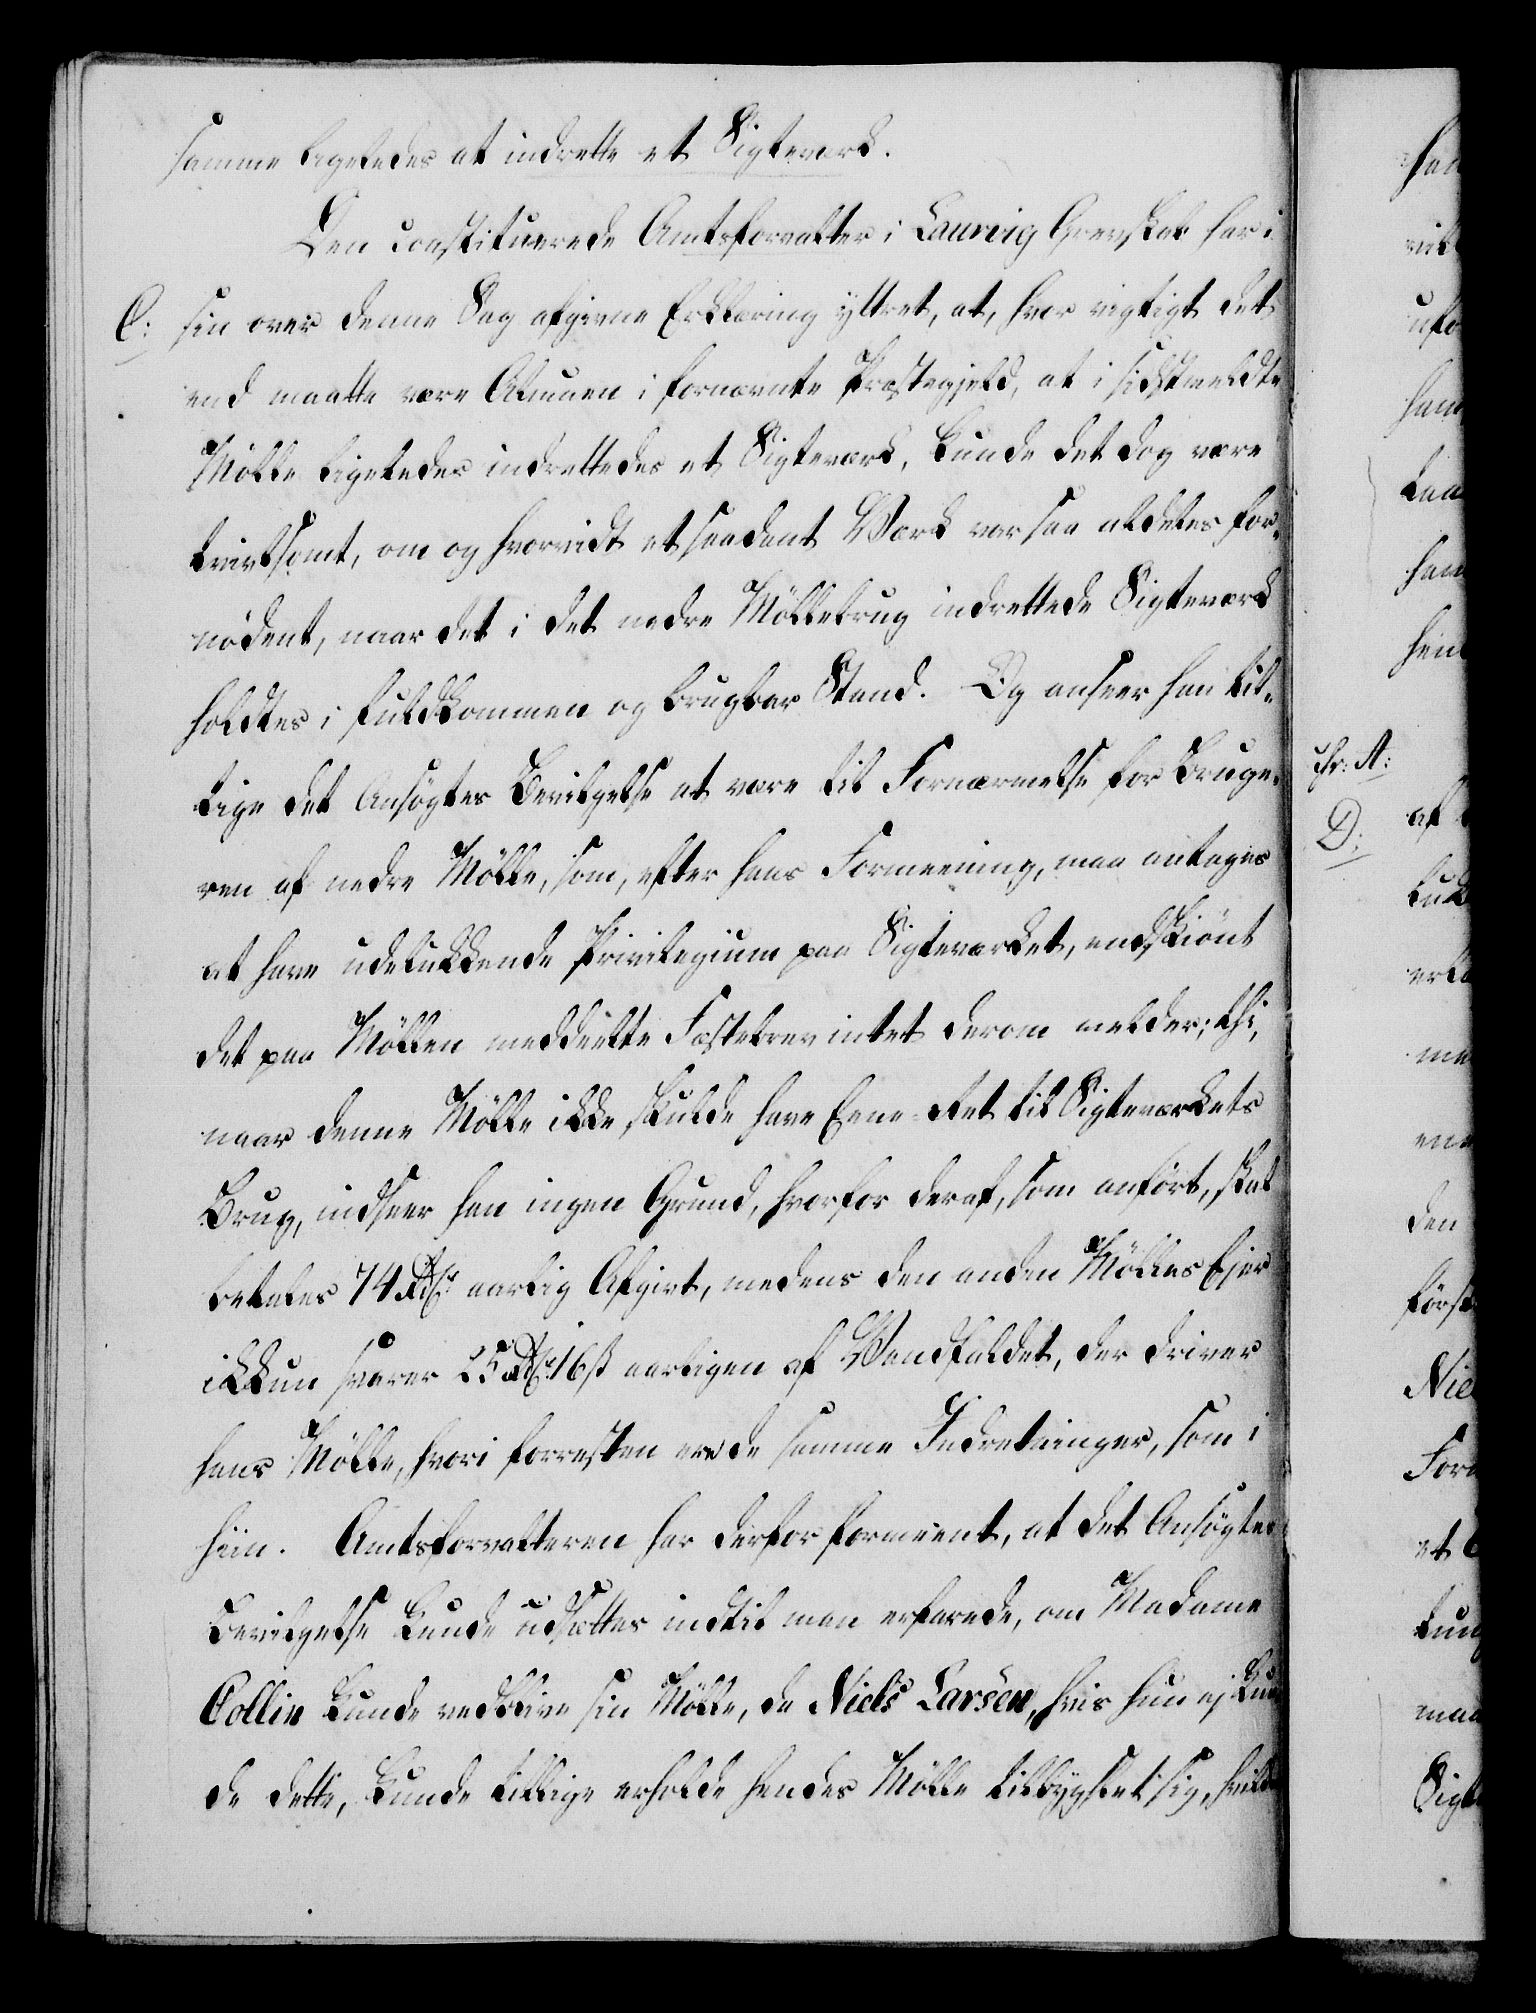 samme ligeledes at indrette et Sigteværk.
Den constituerede Amtsforvalter i Laurvig Grevskab har i
C: sin over denne Sag afgivne Erklæring yttret, at, hvor vigtigt det
end maatte være Almuen i fornævnte Præstegjeld, at i sidstmeldte
Mölle ligeledes indrettedes et Sigteværk, kunde det dog være
tvivlsomt, om og hvorvidt et saadant Værk var saa aldeles for-
nödent, naar det i det nedre Möllebrug indrettede Sigteværk
holdtes i fuldkommen og brugbar Stand. Og anseer han til-
lige det Ansögtes Bevilgelse at være til Fornærmelse for Bruge-
ren af nedre Mölle, som, efter hans Formeening, maa antages
at have udelukkende Privilegium paa Sigteværket, endskiönt
det paa Möllen meddeelte Fæstebrev intet derom melder; thi,
naar denne Mölle ikke skulde have Ene-Ret til Sigteværkets
Brug, indseer han ingen Grund, hvorfor deraf, som anfört, skal
betales 74 Rdlr aarlig Afgivt, medens den anden Mölles Ejer
ikkun svarer 25 Rdlr 16 ß aarligen af Vandfaldet, der driver
hans Mölle, hvori forresten ere de samme Indretninger, som i
hiin. Amtsforvalteren har derfor formeent, at det Ansögtes
Bevilgelse kunde udsættes indtil man erfarede, om Madame
Collin kunde vedblive sin Mölle, da Niels Larsen, hvis hun ej kun-
de dette, kunde tillige erholde hendes Mölle tilbygslet sig,
chr: A:
D:
af
den
först
Nie
For
et
maa
Sigt